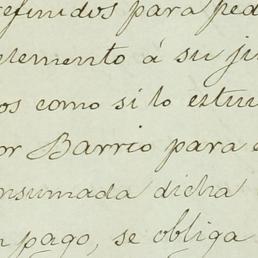 refundos para ped
elemento á su ju
os como si lo estu
or Barrio para
nsumada dicha
pago, se obliga